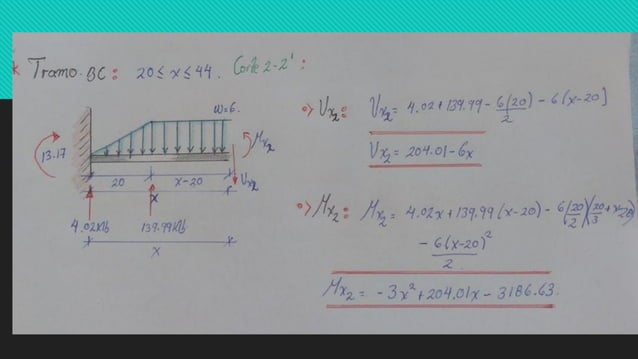 * Tramo. BC: 20 ≤ x ≤ 44. Corte 2-2':
w=6.
Mx2
13.17
20 x-20
Vx2
x
4.02klb 139.99klb
x
•) Vx2: Vx2 = 4.02 + 139.99 - 6(20)/2 - 6(x-20)
Vx2 = 204.01-6x
•) Mx2: Mx2 = 4.02x + 139.99(x-20) - (6(20)/2)(20/3 + x-20)
- 6(x-20)²/2.
Mx2 = -3x² + 204.01x - 3186.63.